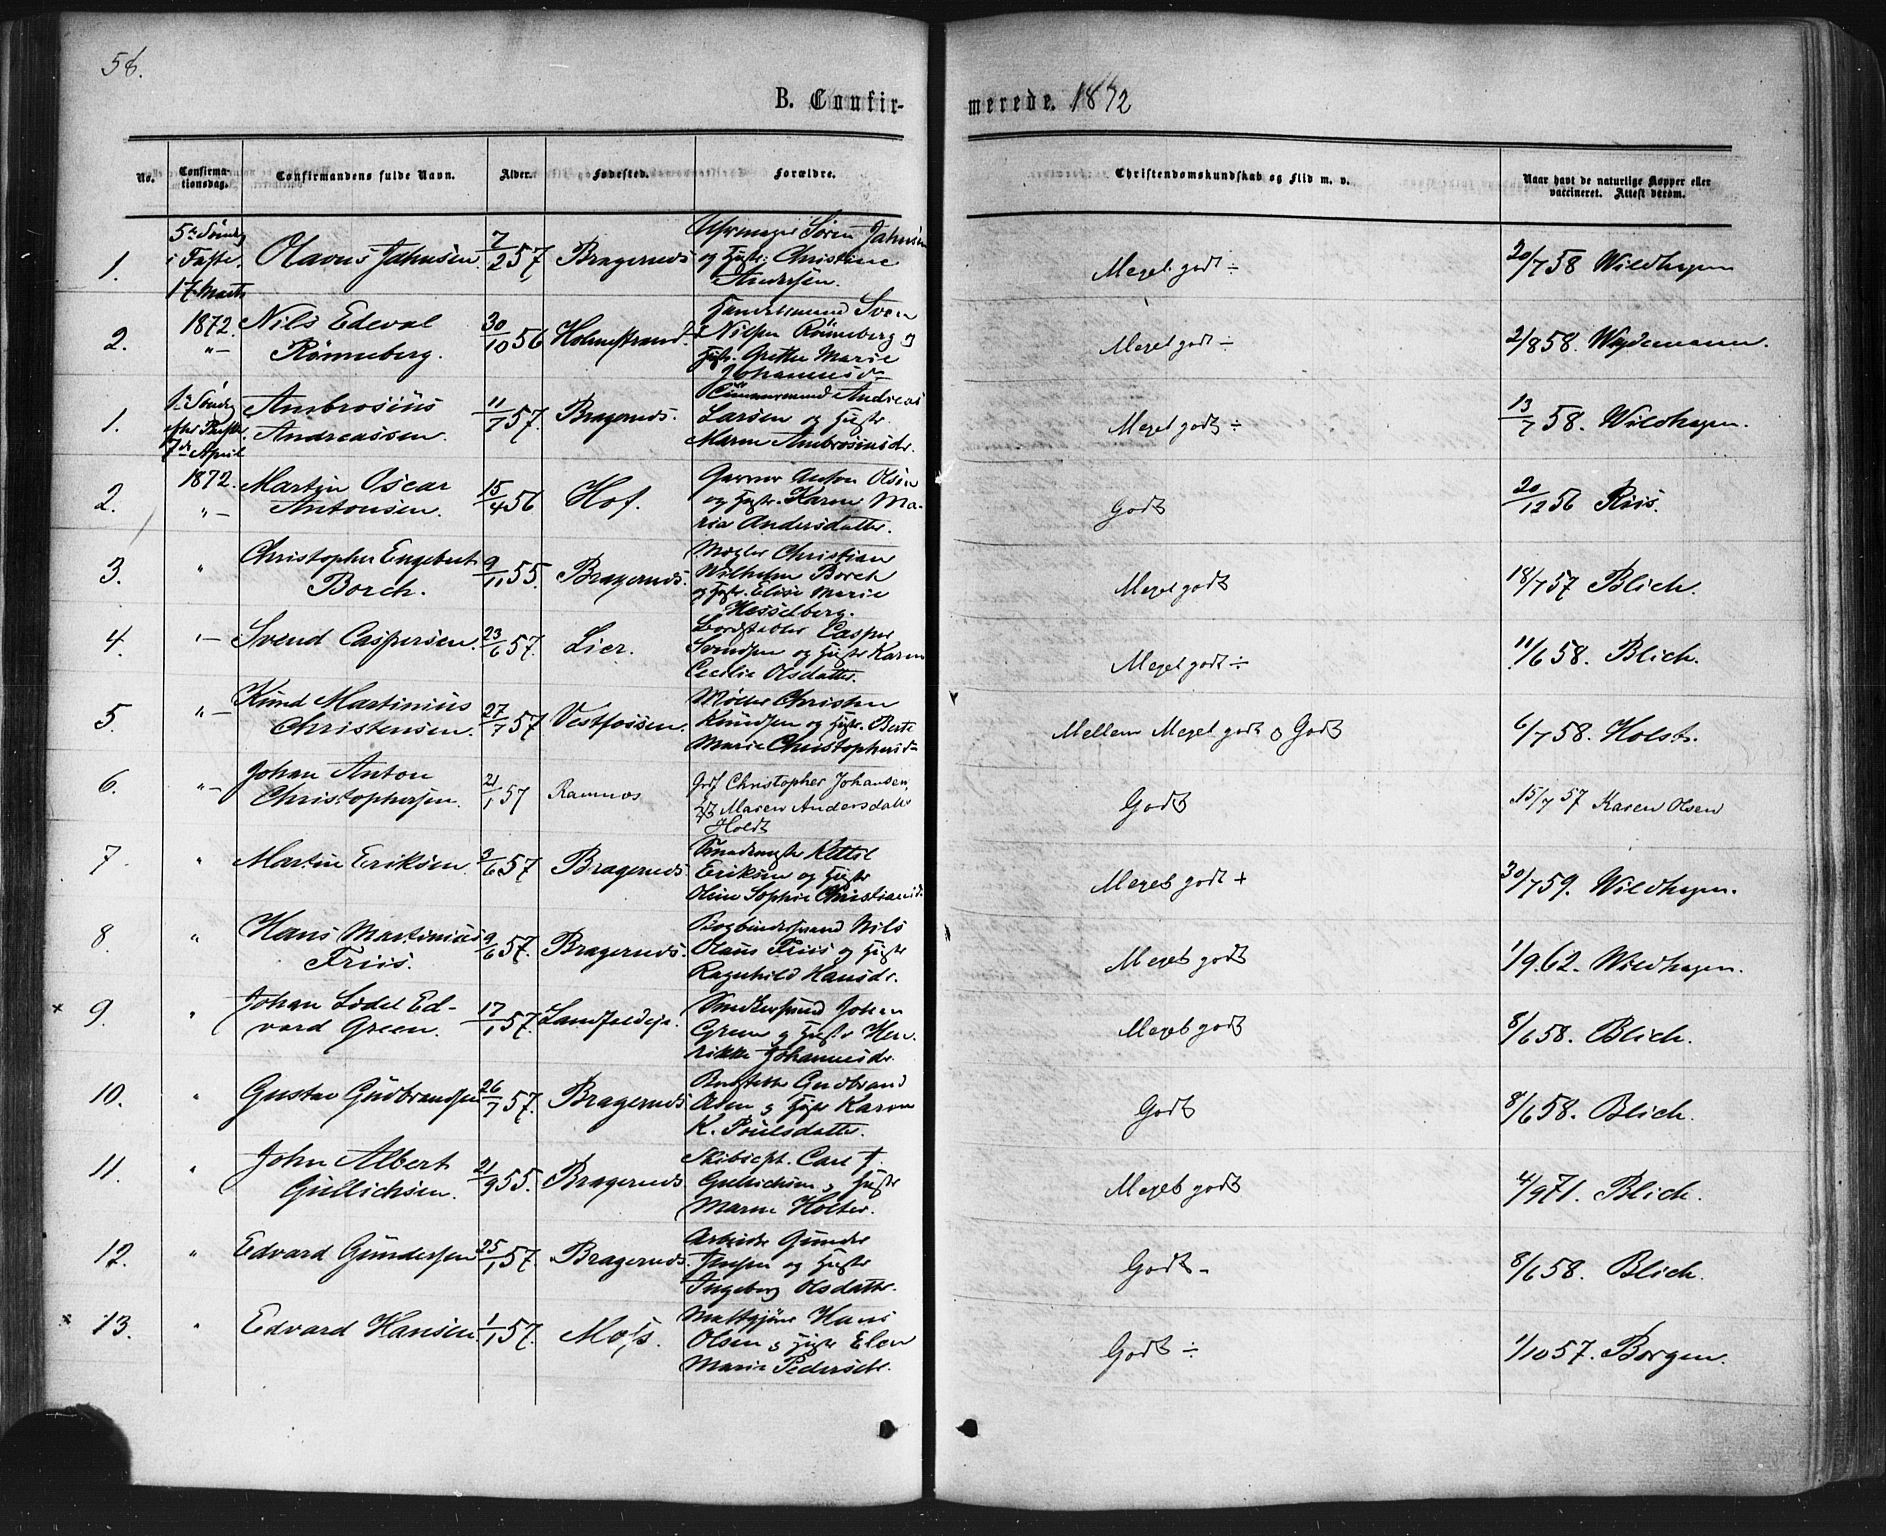 56.
B. Confir-
merede. 1872
No.
Confirma-
tionsdag.
Confirmandens fulde Navn.
Alder.
Fødested.
Forældre.
Christendomskundskab og Flid m. v.
Naar havt de naturlige Kopper eller
vaccineret. Attest derom.
1.
5te Søndag
i Faste.
17 Marts
1872.
Olavus Jahnsen.
7/2 57
Bragernes
Søren Jahnsen
og Hustr: Christine
Andersen.
Meget godt ÷
20/7 58 Wildhagen
2.
"—
Nils Edeval
Rønneberg.
30/10 56
Holmestrand.
Handelsmand Sven
Nilsen Rønneberg og
Hustr. Grethe Marie
Johannesdr
Meget godt ÷
2/8 58. Wydemann.
1.
1te Søndag
efter Paaske
7de April
1872.
Ambrosius
Andreassen.
11/7 57.
Bragernes.
Tømmermand Andreas
Larsen og Hustr
Maren Ambrosiusdr.
Meget godt ÷
13/7 58. Wildhagen.
2.
"—
Martin Oscar
Antonsen.
15/4 56
Hof.
Garver Anton Olsen
og Hustr. Karen Ma-
ria Andersdatter.
Godt
20/12 56 Riis.
3.
"
Christopher Engebret
Borch.
9/11 55.
Bragernes.
Mægler Christian
Wilhelm Borch
og Hustr. Elise Marie
Hesselberg.
Meget godt
18/7 57 Blich.
4.
"—
Svend Caspersen.
23/6 57.
Lier.
Bordstabler Casper
Svendsen og Hustr Karen
Cecilie Olsdatter.
Meget godt ÷
11/6 58. Blich.
5.
"—
Knud Martinius
Christensen.
27/7 57
Vestfossen.
Møller Christen
Knudsen og Hustr. Berte
Marie Christophersdr
Mellem Meget godt og Godt
6/7 58. Holst.
6.
"—
Johan Anton
Christophersen.
21/1 57
Ramnes
Grdf Christopher Johansen,
Maren Andersdatter
Holdt
Godt
15/7 57 Karen Olsen
7.
"
Martin Eriksen.
3/6 57
Bragernes.
Kettil
Eriksen og Hustr
Oline Sophie Christiansdr
Meget godt +
30/7 59. Wildhagen.
8.
"
Hans Martinius
Friis.
9/6 57.
Bragernes.
Bogbindersvend Nils
Olaus Friis og Hustr
Ragnhild Hansdr.
Meget godt
1/9 62. Wildhagen.
×
9.
"
Johan Lodel Ed-
vard Green.
17/1 57.
Landfaldøje.
Snedkersvend Johan
Green og Hustr Hen-
rikke Johannesdr.
Meget godt
8/6 58. Blich.
10.
"
Gustav Gudbrandsen
26/7 57.
Bragernes.
Gudbrand
Olsen og Hustr Karen
K. Poulsdatter.
Godt
8/6 58. Blich.
11.
"
John Albert
Gullichsen.
21/9 55.
Bragernes
Skibscpt. Carl J.
Gullichsen og Hustr
Maren Holter.
Meget godt
4/9 71. Blich.
12.
"
Edvard Gundersen
25/1 57.
Bragernes.
Arbeider Gunder
Jensen og Hustr
Ingeborg Olsdatter.
Godt -
8/6 58. Blich.
×
13.
"
Edvard Hansen.
1/1 57.
Moss.
Maltgjører Hans
Olsen og Hustr Elen
Marie Pedersdr.
Godt ÷
1/10 57. Borgen.